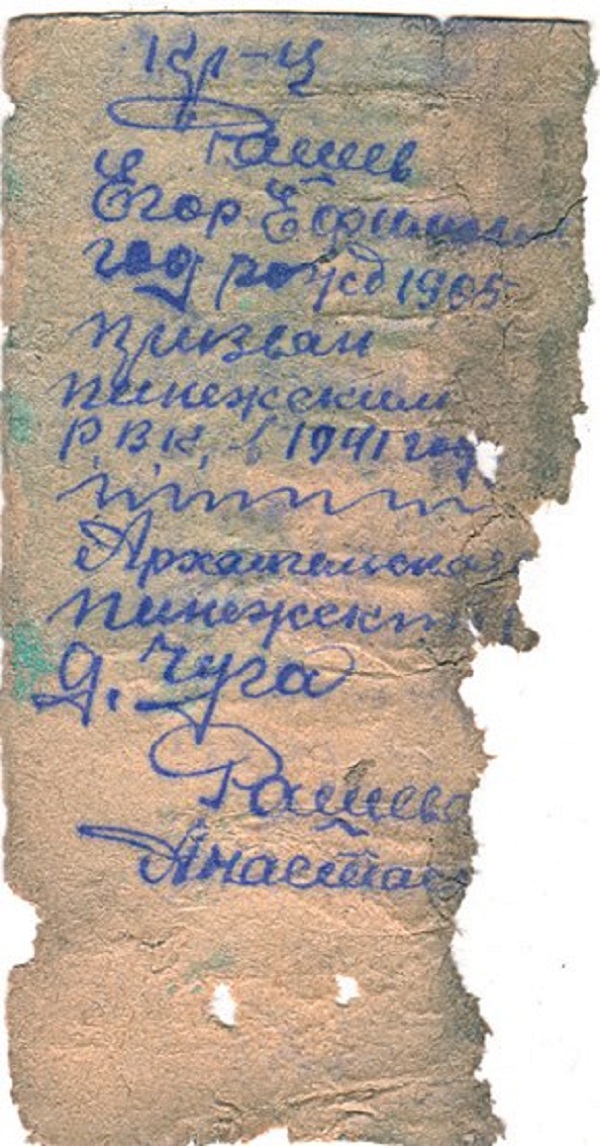 Кр-ц
Рашев
Егор Ефимович
год рожд 1905
призван
пинежским
Р.В.К. в 1941 год
Архангельская
пинежский
д. Чуга
Рашева
Анастас